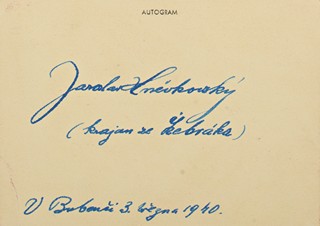 AUTOGRAM
Jaroslav Hněvkovský
(krajan ze Žebráka)
V Bubenči 3. března 1940.